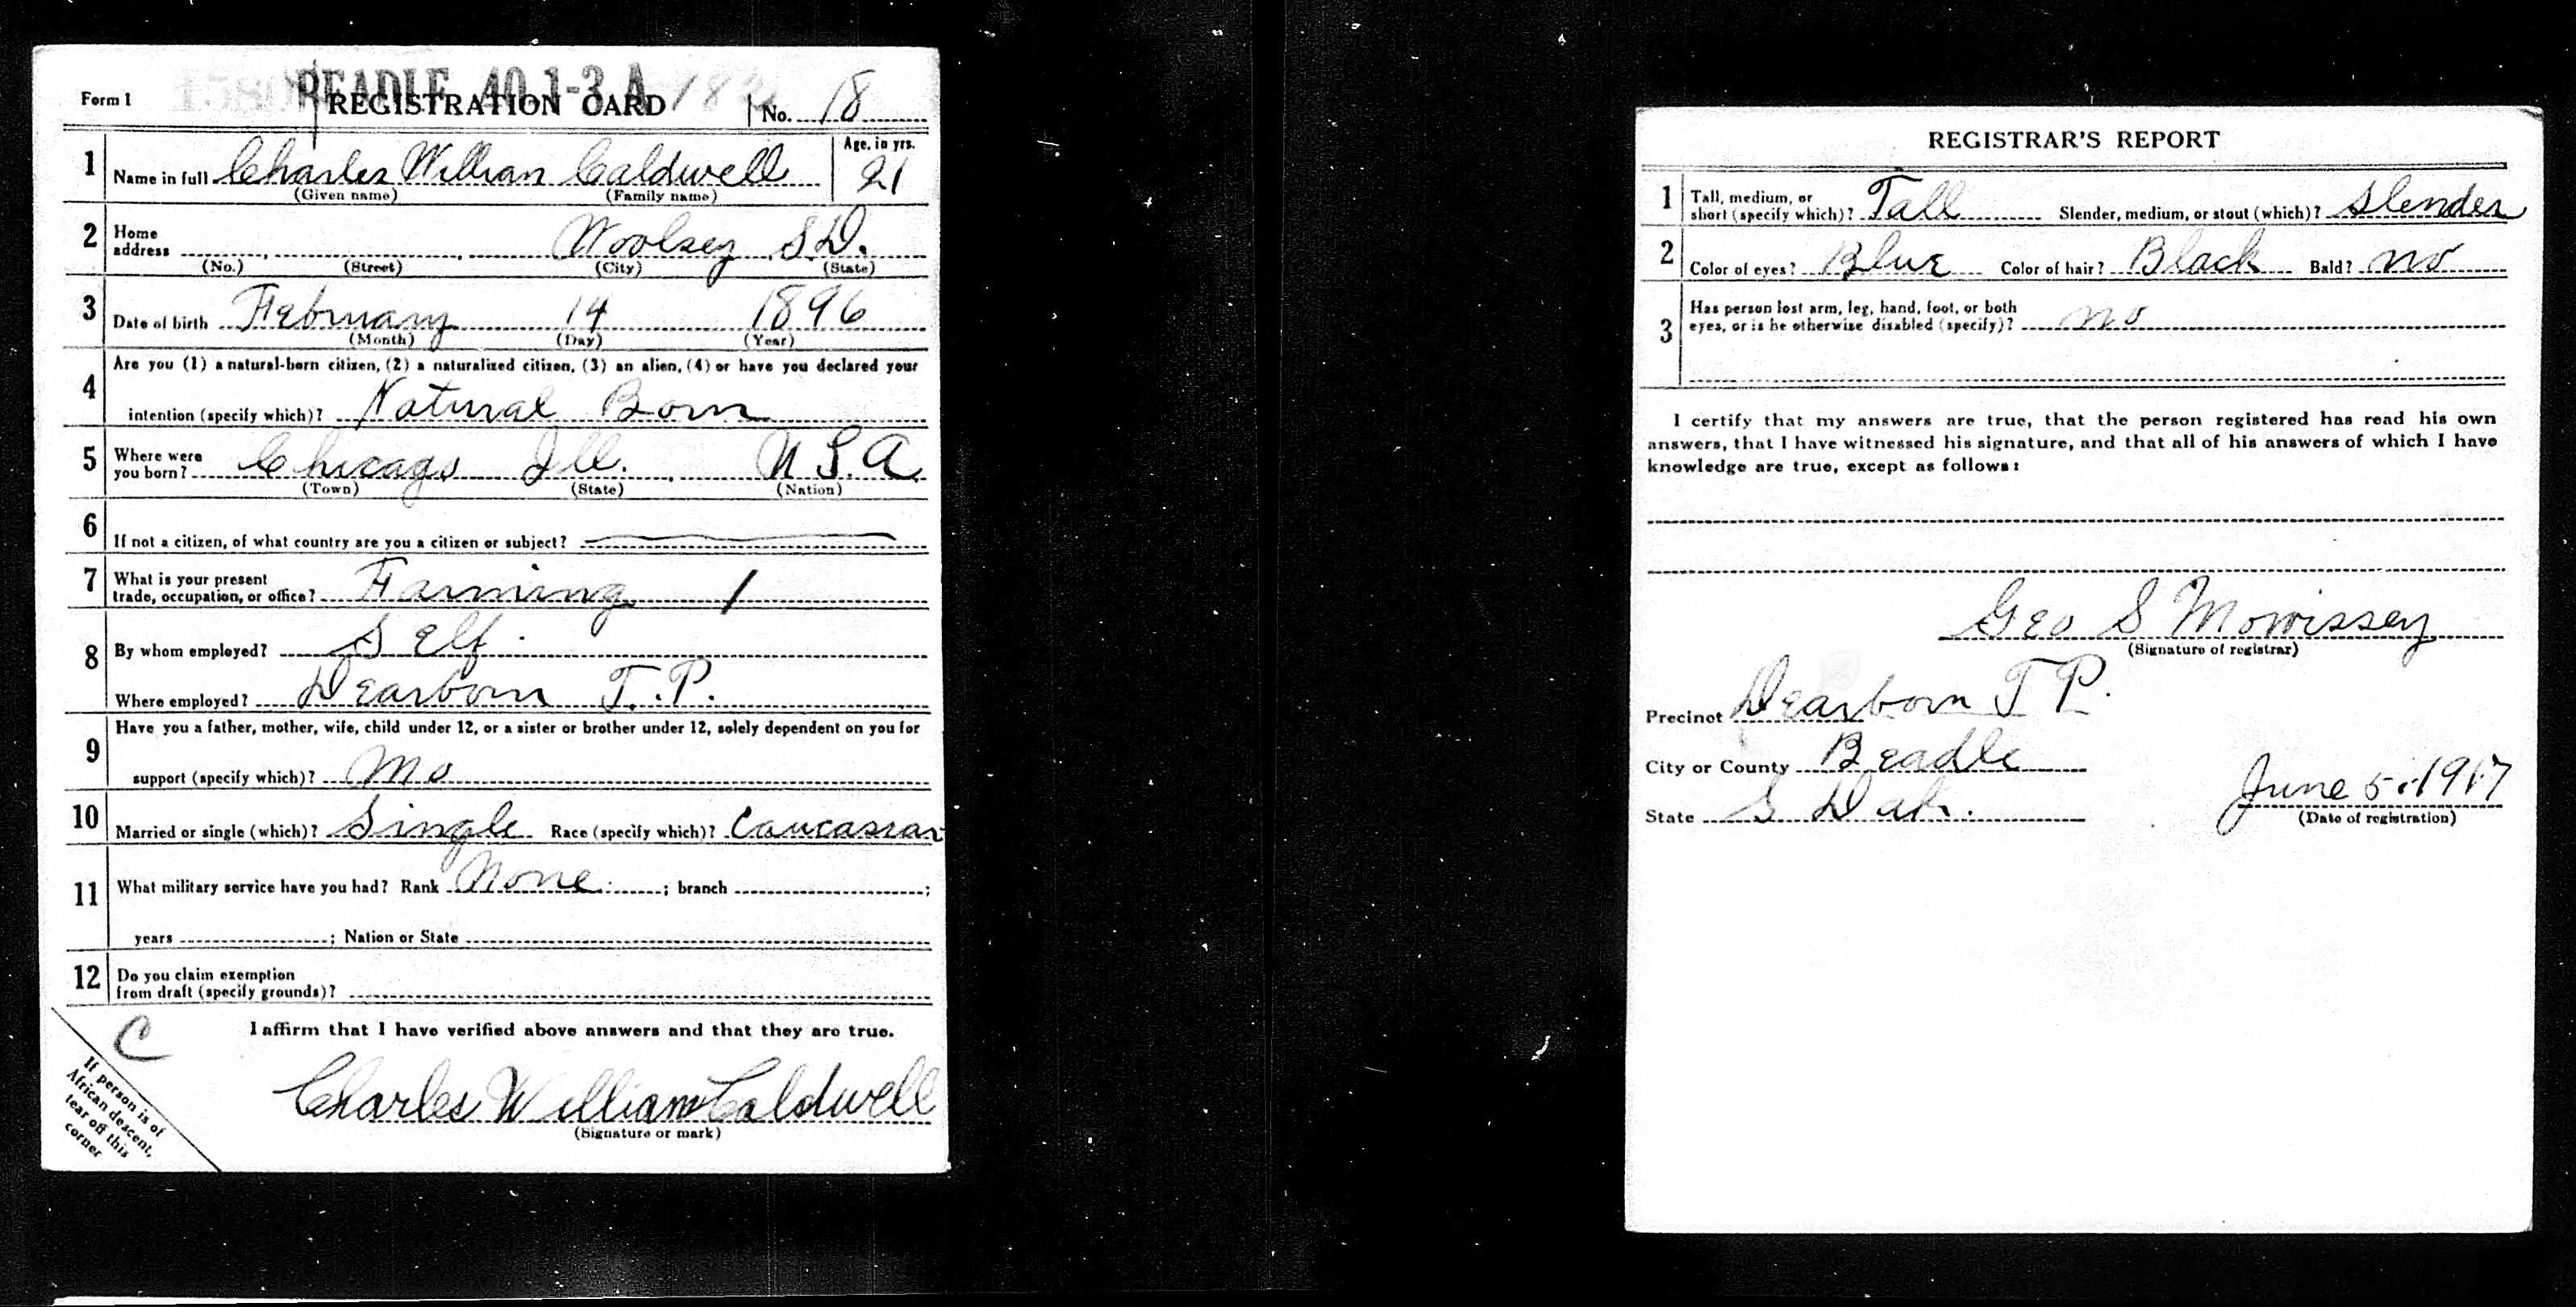 BEADLE 40.1-3 A
Form 1 REGISTRATION CARD No. 18
1 Name in full Charles William Caldwell Age, in yrs. 21
(Given name) (Family name)
2 Home address Woolsey S.D.
(No.) (Street) (City) (State)
3 Date of birth February 14 1896
(Month) (Day) (Year)
4 Are you (1) a natural-born citizen, (2) a naturalized citizen, (3) an alien, (4) or have you declared your
intention (specify which)? Natural Born
5 Where were you born? Chicago Ill. U.S.A.
(Town) (State) (Nation)
6 If not a citizen, of what country are you a citizen or subject?
7 What is your present
trade, occupation, or office? Farming 1
8 By whom employed? Self.
Where employed? Dearborn T.P.
9 Have you a father, mother, wife, child under 12, or a sister or brother under 12, solely dependent on you for
support (specify which)? no
10 Married or single (which)? Single Race (specify which)? Caucasian
11 What military service have you had? Rank None ; branch ;
years ; Nation or State
12 Do you claim exemption
from draft (specify grounds)?
C
I affirm that I have verified above answers and that they are true.
Charles William Caldwell
(Signature or mark)
If person is of
African descent,
tear off this
corner
REGISTRAR'S REPORT
1 Tall, medium, or
short (specify which)? Tall Slender, medium, or stout (which)? Slender
2 Color of eyes? Blue Color of hair? Black Bald? no
3 Has person lost arm, leg, hand, foot, or both
eyes, or is he otherwise disabled (specify)? no
I certify that my answers are true, that the person registered has read his own
answers, that I have witnessed his signature, and that all of his answers of which I have
knowledge are true, except as follows:
Geo S Morrissey
(Signature of registrar)
Precinct Dearborn T P.
City or County Beadle
State S Dak. June 5. 1917
(Date of registration)